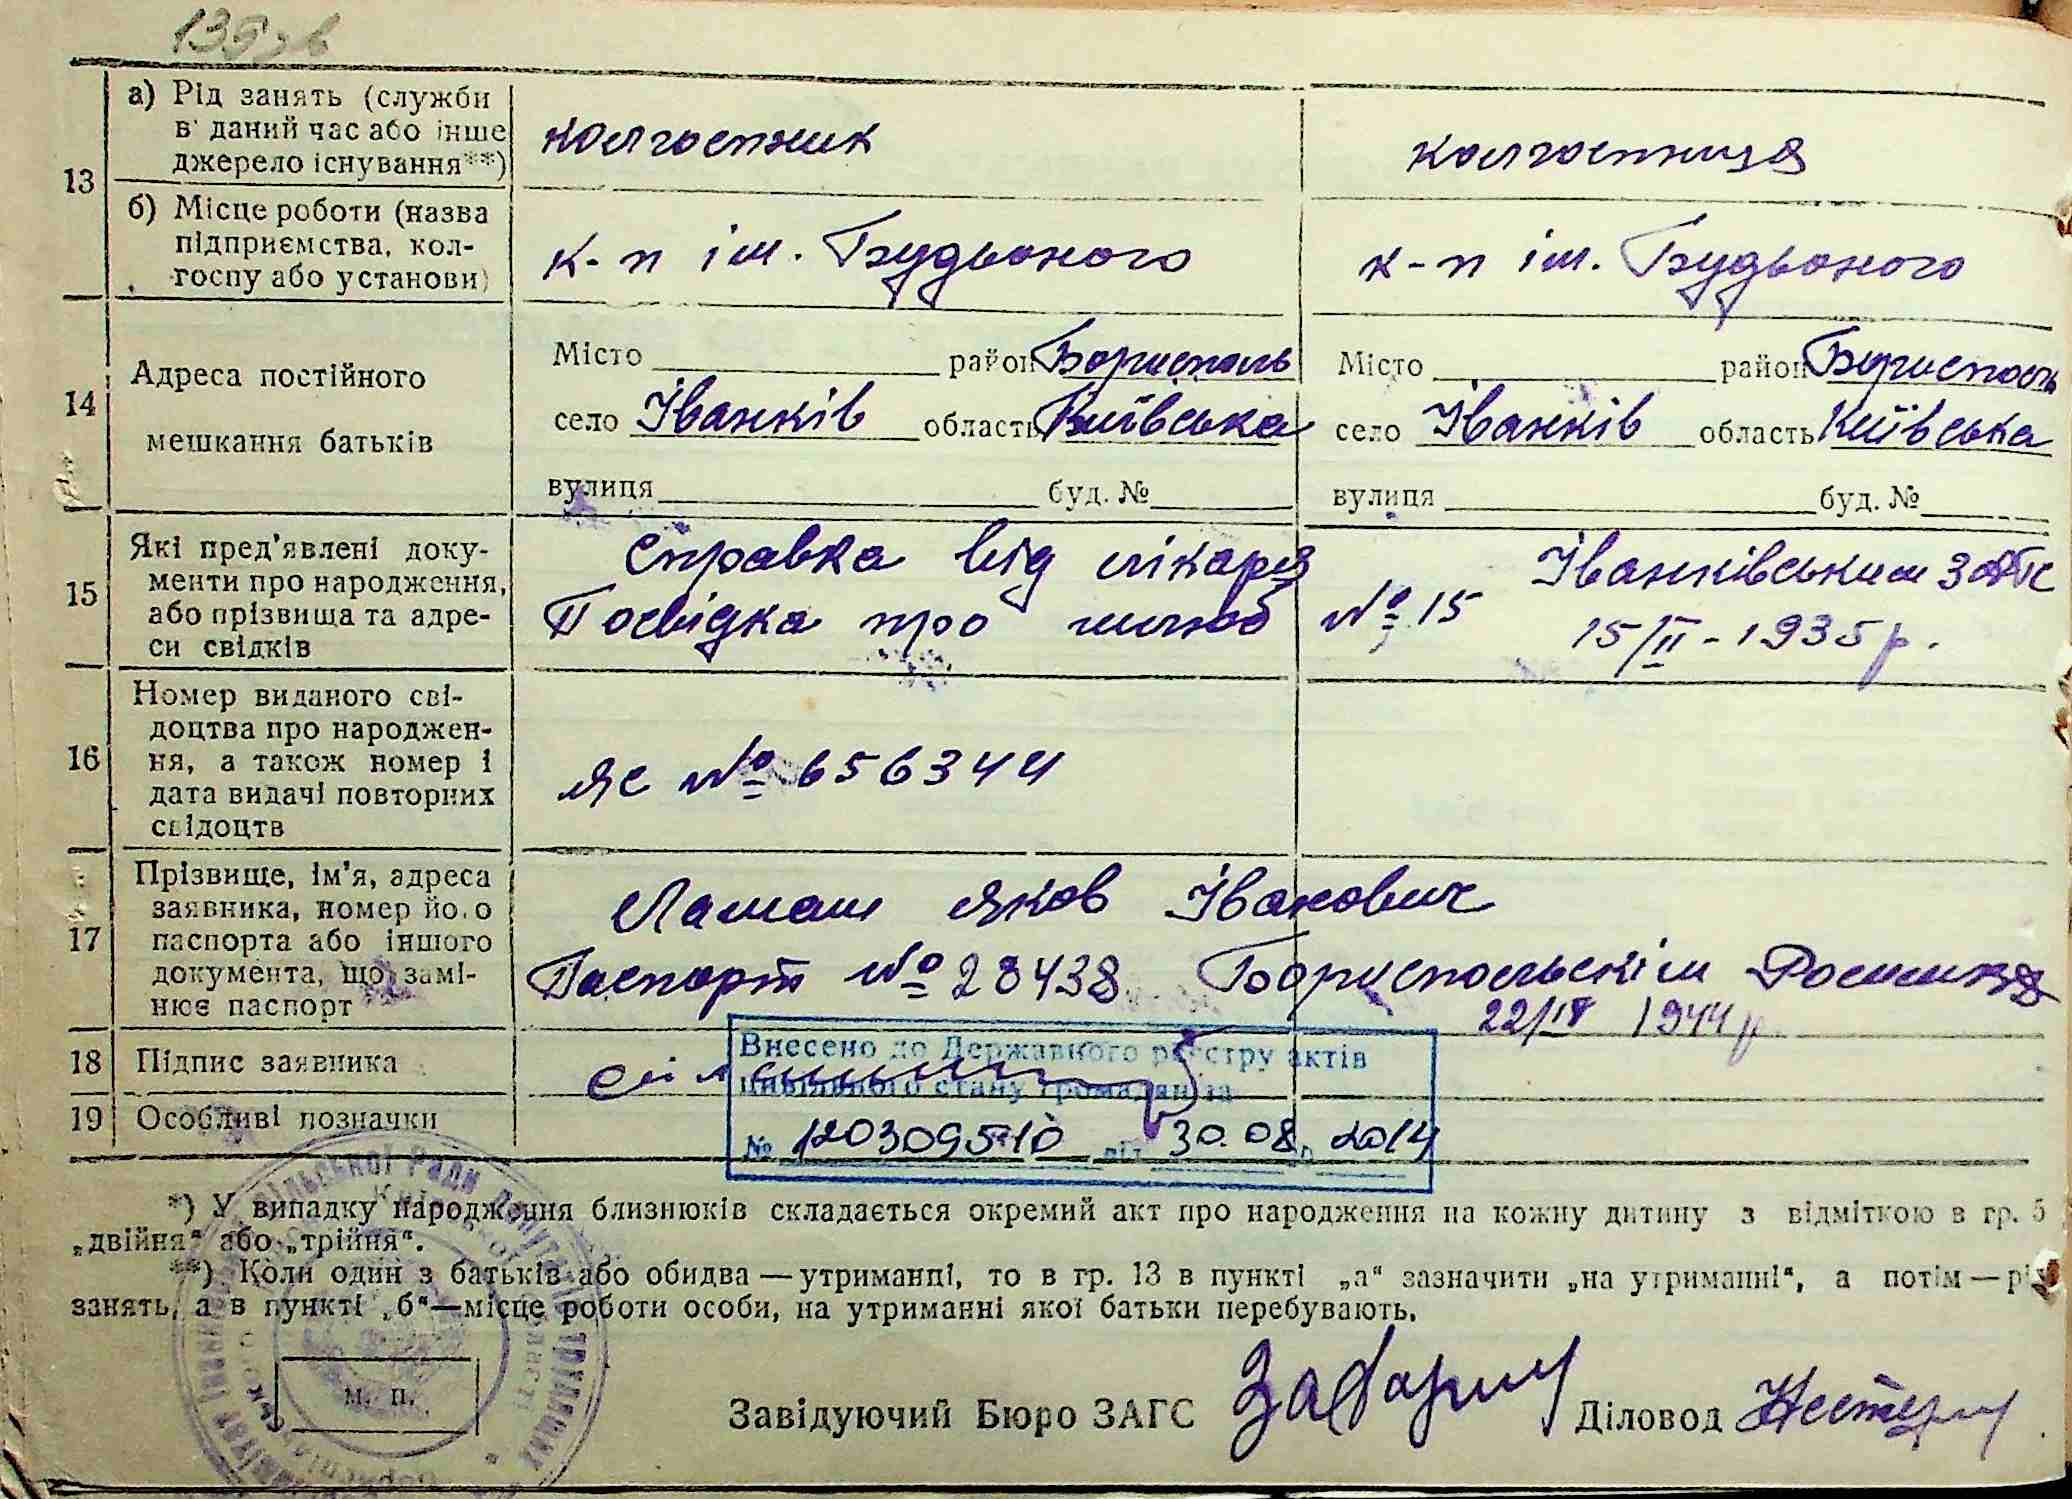 135 зв
13
а) Рід занять (служби в даний час або інше джерело існування**)
колгоспник
колгоспниця
б) Місце роботи (назва підприємства, колгоспу або установи)
к-п ім. Будьоного
к-п ім. Будьоного
14
Адреса постійного мешкання батьків
Місто район Бориспіль
село Іванків область Київська
вулиця буд. №
Місто район Бориспіль
село Іванків область Київська
вулиця буд. №
15
Які пред'явлені документи про народження, або прізвища та адреси свідків
Справка від лікаря Іванківським ЗАГС
Посвідка про шлюб № 15 15/II - 1935 р.
16
Номер виданого свідоцтва про народження, а також номер і дата видачі повторних свідоцтв
ЯС № 656344
17
Прізвище, ім'я, адреса заявника, номер його паспорта або іншого документа, що замінює паспорт
Ламаш Яков Іванович
Паспорт № 28438 Бориспольскім
22/IV 1944 р.
18
Підпис заявника
19
Особливі позначки
Внесено до Державного реєстру актів
цивільного стану громадян за
№ 120309510 від 30.08 р. 2014
*) У випадку народження близнюків складається окремий акт про народження на кожну дитину з відміткою в гр. 5
„двійня“ або „трійня“.
**) Коли один з батьків або обидва — утриманці, то в гр. 13 в пункті „а“ зазначити „на утриманні“, а потім — рід
занять, а в пункті „б“—місце роботи особи, на утриманні якої батьки перебувають.
М. П.
Завідуючий Бюро ЗАГС Діловод